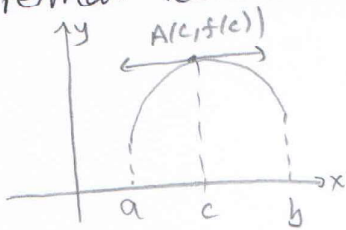 y
A(c, f(c))
x
a
c
b